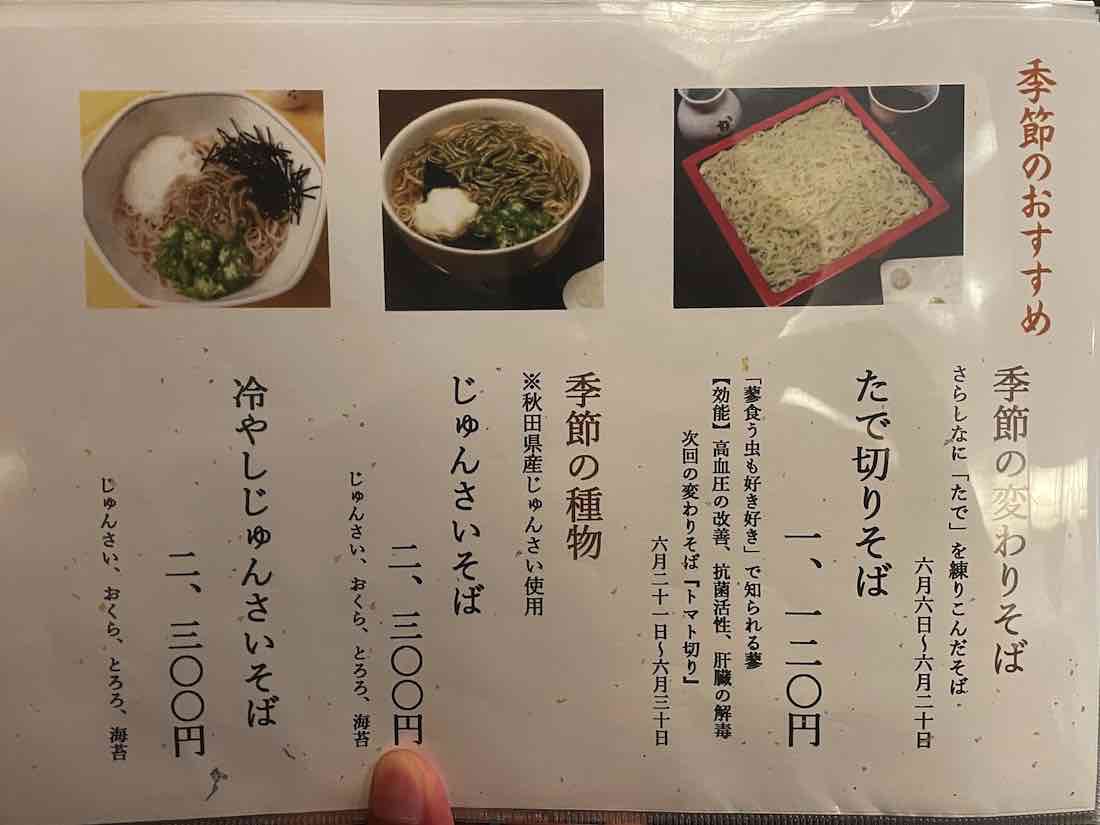 季節のおすすめ
季節の変わりそば
さらしなに「たで」を練りこんだそば
六月六日〜六月二十日
たで切りそば
一、一二〇円
「蓼食う虫も好き好き」で知られる蓼
【効能】高血圧の改善、抗菌活性、肝臓の解毒
次回の変わりそば『トマト切り』
六月二十一日〜六月三十日
季節の種物
※秋田県産じゅんさい使用
じゅんさいそば
二、三〇〇円
じゅんさい、おくら、とろろ、海苔
冷やしじゅんさいそば
二、三〇〇円
じゅんさい、おくら、とろろ、海苔